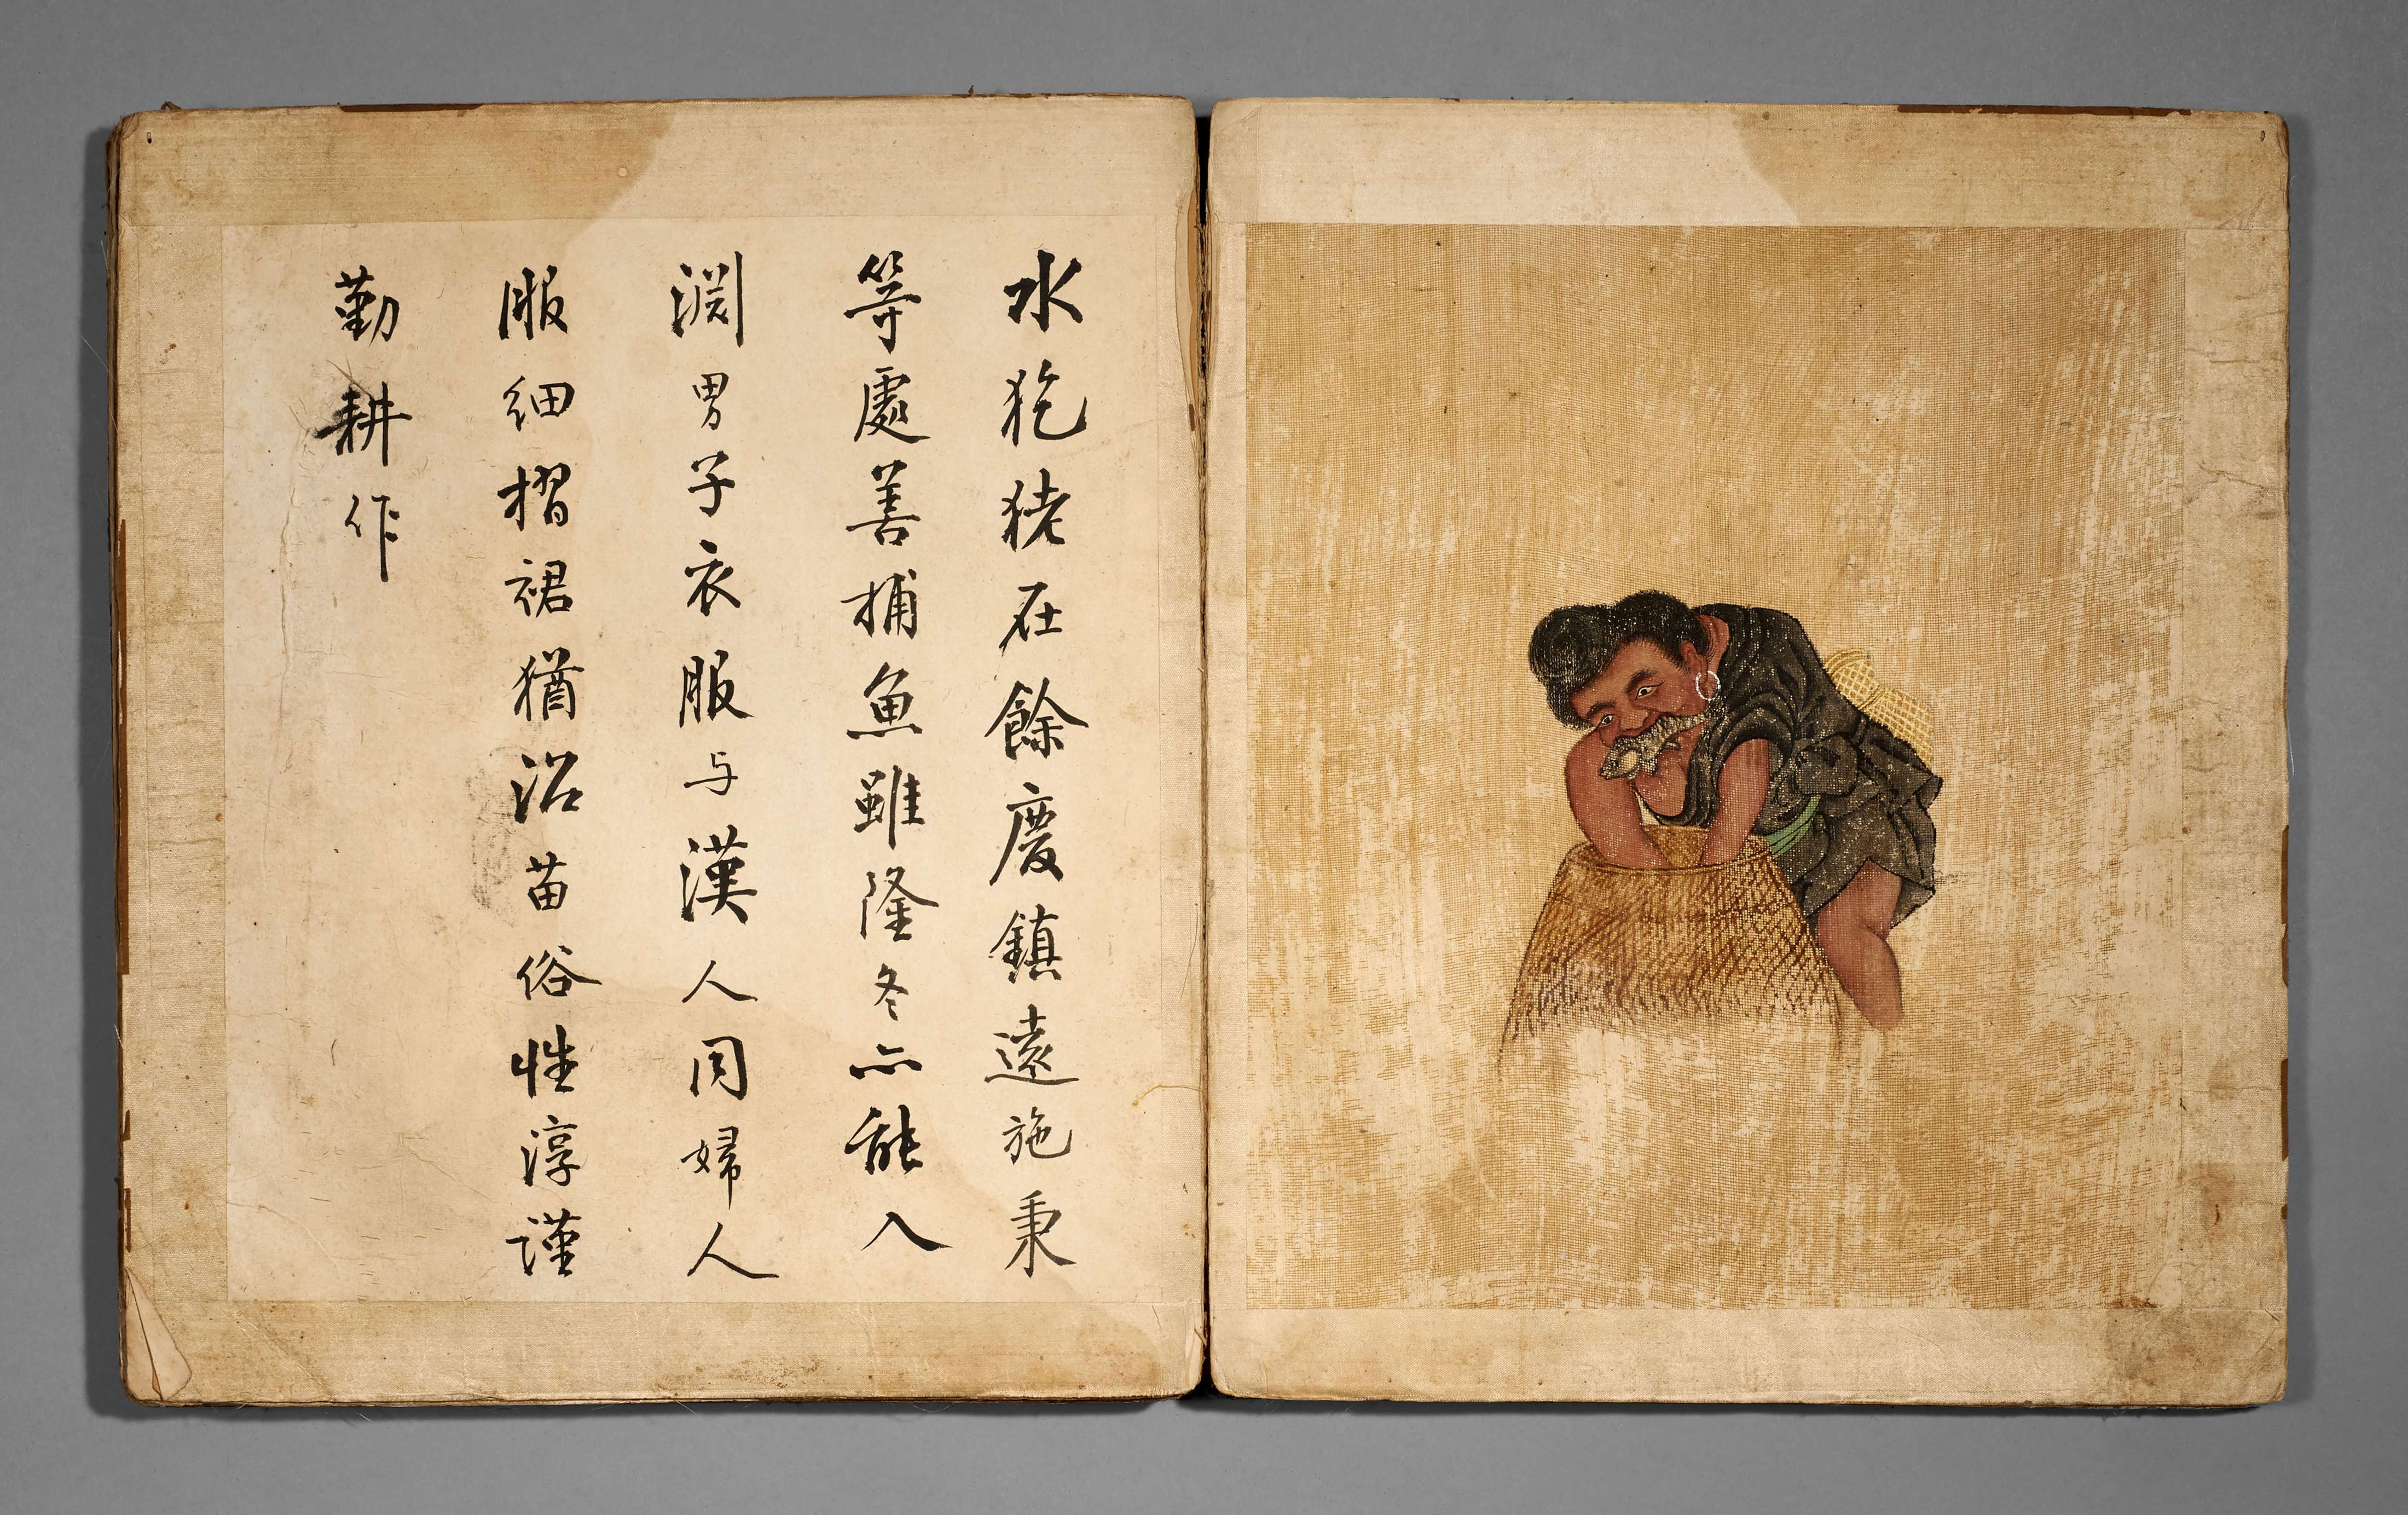 水犵狫在餘慶鎮遠施秉
等處善捕魚雖隆冬亦能入
淵男子衣服与漢人同婦人
服細摺裙猶沿苗俗性淳謹
勤耕作